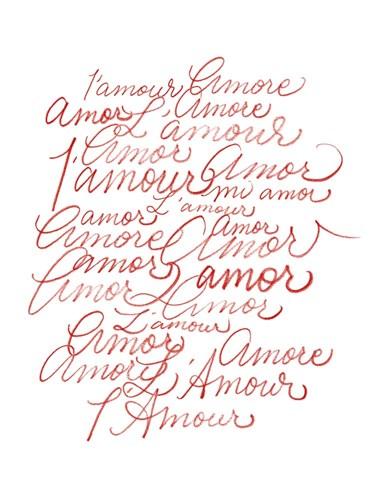 l'amour Amore
amor L'Amore
L'amour
Amor
l'amour Amor
mi amor
L'amour
amor amor
Amore Amor
amor L'amor
Amor Amor
L'amour
Amor Amore
Amor L'Amour
l'Amour